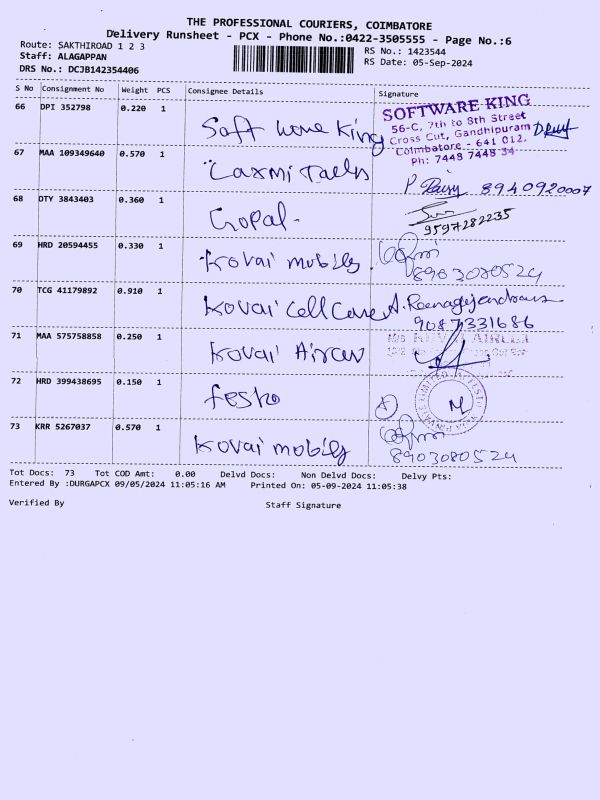 THE PROFESSIONAL COURIERS, COIMBATORE
Delivery Runsheet - PCX - Phone No.:0422-3505555 - Page No.:6
Route: SAKTHIROAD 1 2 3
RS No.: 1423544
Staff: ALAGAPPAN
RS Date: 05-Sep-2024
DRS No.: DCJB142354406
S No Consignment No Weight PCS Consignee Details Signature
66 DPI 352798 0.220 1
Soft ware King
SOFTWARE KING
56-C, 7th to 8th Street
Cross Cut, Gandhipuram
Coimbatore - 641 012.
Ph: 7448 7448 34
67 MAA 109349640 0.570 1
Laxmi Tails
8940920007
68 DTY 3843403 0.360 1
Gopal-
9597282235
69 HRD 20594455 0.330 1
Kovai mobily
8903080524
70 TCG 41179892 0.910 1
Kovai Cell Care
9087331686
71 MAA 575758858 0.250 1
Kovai Aircen
72 HRD 399438695 0.150 1
festo
73 KRR 5267037 0.570 1
Kovai mobily
8903080524
Tot Docs: 73 Tot COD Amt: 0.00 Delvd Docs: Non Delvd Docs: Delvy Pts:
Entered By :DURGAPCX 09/05/2024 11:05:16 AM Printed On: 05-09-2024 11:05:38
Verified By Staff Signature